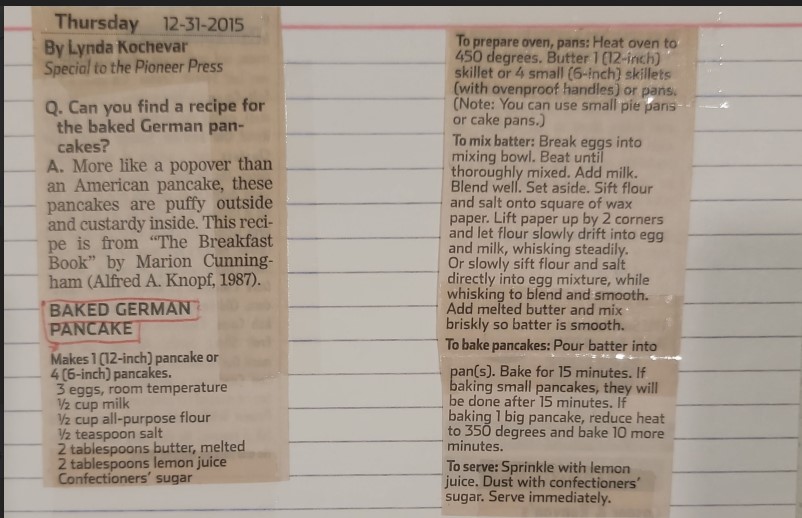 Thursday 12-31-2015
By Lynda Kochevar
Special to the Pioneer Press
Q. Can you find a recipe for
the baked German pan-
cakes?
A. More like a popover than
an American pancake, these
pancakes are puffy outside
and custardy inside. This reci-
pe is from “The Breakfast
Book” by Marion Cunning-
ham (Alfred A. Knopf, 1987).
BAKED GERMAN
PANCAKE
Makes 1 (12-inch) pancake or
4 (6-inch) pancakes.
3 eggs, room temperature
½ cup milk
½ cup all-purpose flour
½ teaspoon salt
2 tablespoons butter, melted
2 tablespoons lemon juice
Confectioners’ sugar
To prepare oven, pans: Heat oven to
450 degrees. Butter 1 (12-inch)
skillet or 4 small (6-inch) skillets
(with ovenproof handles) or pans.
(Note: You can use small pie pans
or cake pans.)
To mix batter: Break eggs into
mixing bowl. Beat until
thoroughly mixed. Add milk.
Blend well. Set aside. Sift flour
and salt onto square of wax
paper. Lift paper up by 2 corners
and let flour slowly drift into egg
and milk, whisking steadily.
Or slowly sift flour and salt
directly into egg mixture, while
whisking to blend and smooth.
Add melted butter and mix
briskly so batter is smooth.
To bake pancakes: Pour batter into
pan(s). Bake for 15 minutes. If
baking small pancakes, they will
be done after 15 minutes. If
baking 1 big pancake, reduce heat
to 350 degrees and bake 10 more
minutes.
To serve: Sprinkle with lemon
juice. Dust with confectioners’
sugar. Serve immediately.